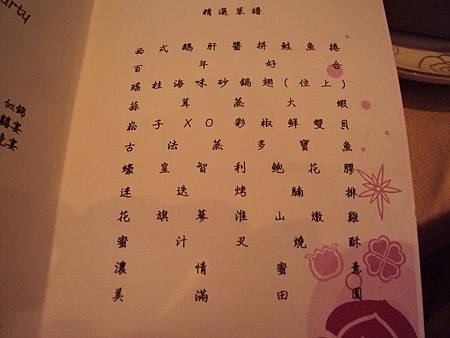 arty
似錦
囍宴
晚宴
精選菜譜
西式鵝肝醬拼鮭魚捲
百年好合
瑤柱海味砂鍋翅(位上)
蒜茸蒸大蝦
崧子XO彩椒鮮雙貝
古法蒸多寶魚
蠔皇智利鮑花膠
迷迭烤腩排
花旗蔘淮山燉雞
蜜汁叉燒酥
濃情蜜意
美滿田園